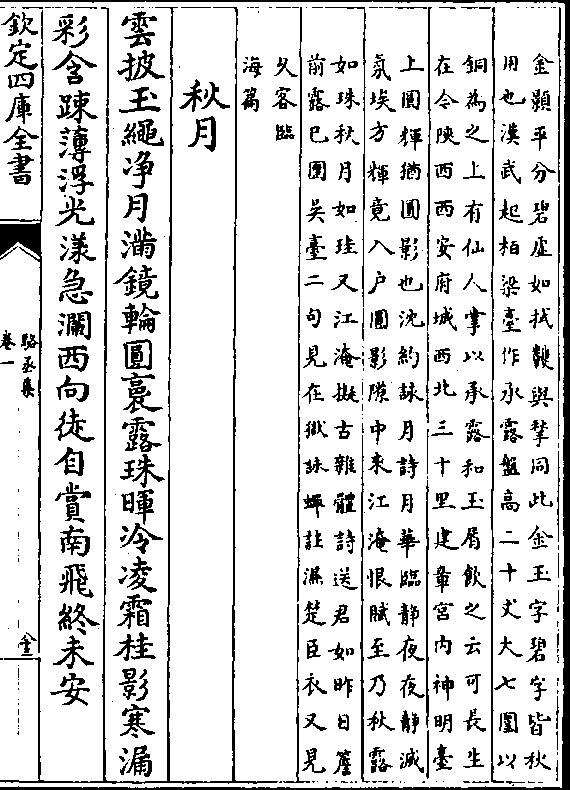 金顥平分碧虚如拭鼗與拏同此金玉字碧字皆秋
用也漢武起栢梁臺作承露盤高二十丈大七圍以
銅為之上有仙人掌以承露和玉屑飲之云可長生
在今陝西西安府城西北三十里建章宫内神明臺
上圓輝猶圓影也沈約詠月詩月華臨静夜夜静滅
氛埃方輝竟入户圓影隙中来江淹恨賦至乃秋露
如珠秋月如珪又江淹擬古雜體詩送君如昨日簷
前露已團吴臺二句見在獄詠蟬註濕楚臣衣又見
久客臨
海篇
秋月
雲披玉繩净月滿鏡輪圓裛露珠暉冷凌霜桂影寒漏
彩含踈薄浮光漾急瀾西向徒自賞南飛終未安
欽定四庫全書
駱丞集
卷一